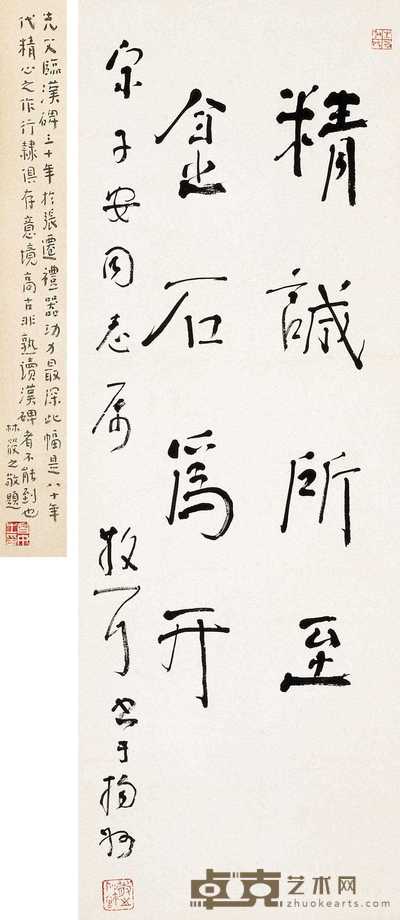 精誠所至
金石爲开
宗子安同志属 散耳书于扬州
先父臨漢碑三十年於張遷禮器功力最深此幅是八十年
代精心之作行隸俱存意境高古非熟讀漢碑者不能到也
林筱之敬題
卓克艺术网
zhuokearts.com